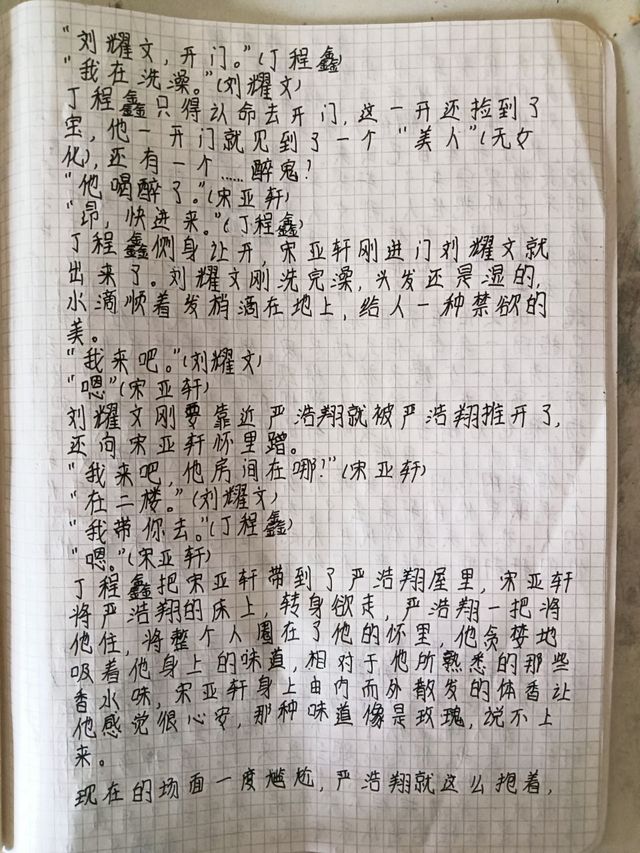 “刘耀文，开门。”(丁程鑫)
“我在洗澡。”(刘耀文)
丁程鑫只得认命去开门，这一开还捡到了
宝，他一开门就见到了一个“美人”(无女
化)，还有一个……醉鬼？
“他喝醉了。”(宋亚轩)
“昂，快进来。”(丁程鑫)
丁程鑫侧身让开，宋亚轩刚进门刘耀文就
出来了。刘耀文刚洗完澡，头发还是湿的，
水滴顺着发梢滴在地上，给人一种禁欲的
美。
“我来吧。”(刘耀文)
“嗯”(宋亚轩)
刘耀文刚要靠近严浩翔就被严浩翔推开了，
还向宋亚轩怀里蹭。
“我来吧，他房间在哪？”(宋亚轩)
“在二楼。”(刘耀文)
“我带你去。”(丁程鑫)
“嗯。”(宋亚轩)
丁程鑫把宋亚轩带到了严浩翔屋里，宋亚轩
将严浩翔的床上，转身欲走，严浩翔一把将
他住，将整个人圈在了他的怀里，他贪婪地
吸着他身上的味道，相对于他所熟悉的那些
香水味，宋亚轩身上由内而外散发的体香让
他感觉很心安，那种味道像是玫瑰，说不上
来。
现在的场面一度尴尬，严浩翔就这么抱着，